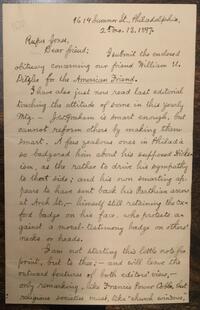 1614 Summer St., Philadelphia,
2nd mo. 12. 1897.
Rufus Jones,
Dear friend; I submit the enclosed
obituary concerning our friend William U.
Ditzler for the American Friend.
I have also just now read last editorial
touching the attitude of some in this yearly
Mtg. — Jos. is smart enough, but
cannot reform others by making them
smart. A few zealous ones in Philad'a
so badgered him about his supposed Hicks-
ism, as the rather to drive his sympathy
to that side; and his own smarting ap-
pears to have sent back his Parthian arrow
at Arch St. — himself still retaining the
badge on his face, who protests a-
gainst a moral-testimony badge on others'
necks or heads.
I am not starting this little note for
print, but to thee; — and will leave the
outward features of both editors' views, —
only remarking, like Frances Power Cobbe, that
religious societies must, like "church windows,"